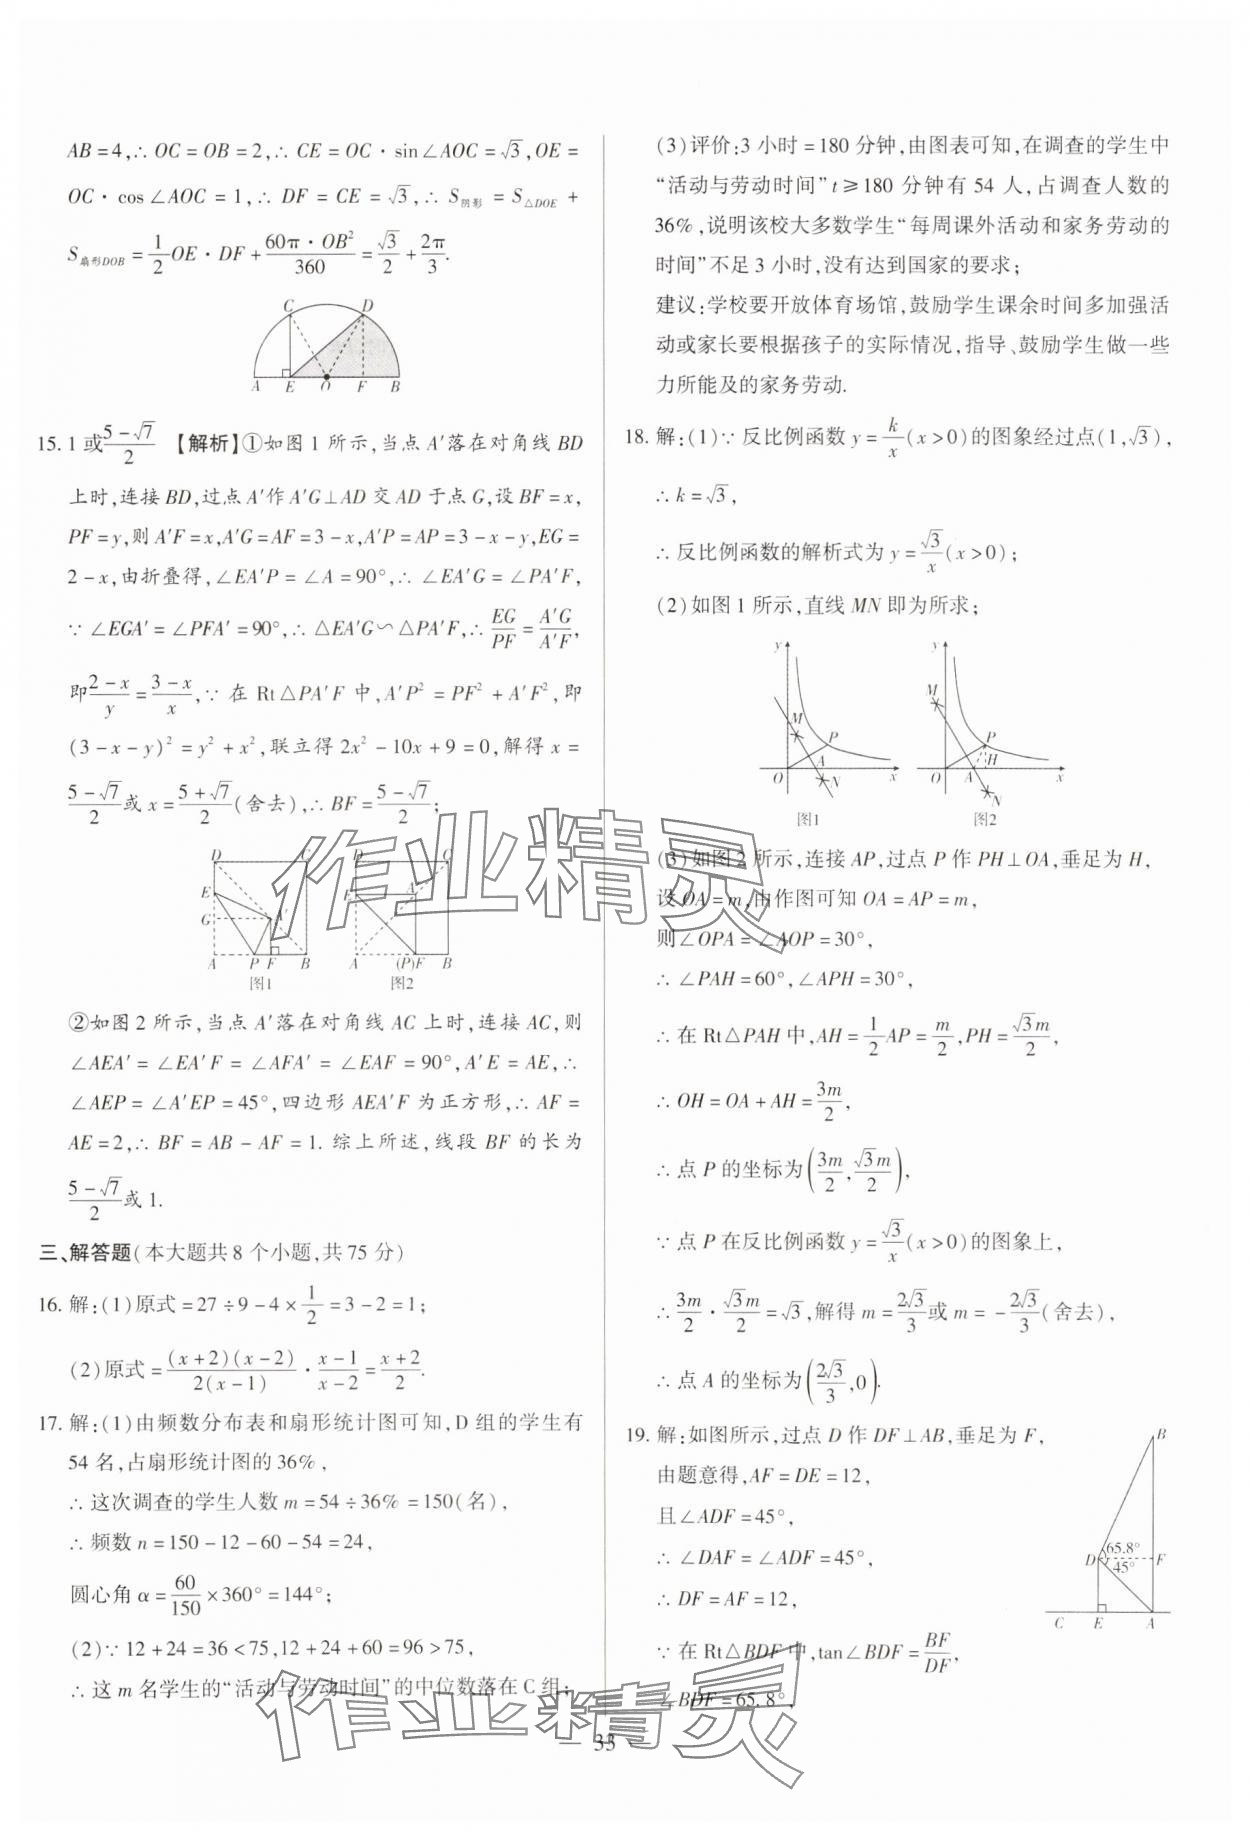 AB=4,∴ OC=OB=2,∴ CE=OC·sin∠AOC=√3,OE=
OC·cos∠AOC=1,∴ DF=CE=√3,∴ S阴影=S△DOE+
S扇形DOB=1/2 OE·DF+60π·OB²/360=√3/2+2π/3.
C D
A E O F B
15. 1或(5-√7)/2 【解析】①如图1所示,当点A′落在对角线BD
上时,连接BD,过点A′作A′G⊥AD交AD于点G,设BF=x,
PF=y,则A′F=x,A′G=AF=3-x,A′P=AP=3-x-y,EG=
2-x,由折叠得,∠EA′P=∠A=90°,∴ ∠EA′G=∠PA′F,
∵ ∠EGA′=∠PFA′=90°,∴ △EA′G∽△PA′F,∴ EG/PF=A′G/A′F,
即(2-x)/y=(3-x)/x,∵ 在Rt△PA′F中,A′P²=PF²+A′F²,即
(3-x-y)²=y²+x²,联立得2x²-10x+9=0,解得x=
(5-√7)/2或x=(5+√7)/2(舍去),∴ BF=(5-√7)/2;
D C
E
G A′
A P F B
图1
D C
E A′
A (P)F B
图2
②如图2所示,当点A′落在对角线AC上时,连接AC,则
∠AEA′=∠EA′F=∠AFA′=∠EAF=90°,A′E=AE,∴
∠AEP=∠A′EP=45°,四边形AEA′F为正方形,∴ AF=
AE=2,∴ BF=AB-AF=1. 综上所述,线段BF的长为
(5-√7)/2或1.
三、解答题(本大题共8个小题,共75分)
16. 解:(1)原式=27÷9-4×1/2=3-2=1;
(2)原式=(x+2)(x-2)/2(x-1)·(x-1)/(x-2)=(x+2)/2.
17. 解:(1)由频数分布表和扇形统计图可知,D组的学生有
54名,占扇形统计图的36%,
∴ 这次调查的学生人数m=54÷36%=150(名),
∴ 频数n=150-12-60-54=24,
圆心角α=60/150×360°=144°;
(2)∵ 12+24=36<75,12+24+60=96>75,
∴ 这m名学生的“活动与劳动时间”的中位数落在C组;
(3)评价:3小时=180分钟,由图表可知,在调查的学生中
“活动与劳动时间”t≥180分钟有54人,占调查人数的
36%,说明该校大多数学生“每周课外活动和家务劳动的
时间”不足3小时,没有达到国家的要求;
建议:学校要开放体育场馆,鼓励学生课余时间多加强活
动或家长要根据孩子的实际情况,指导、鼓励学生做一些
力所能及的家务劳动.
18. 解:(1)∵ 反比例函数y=k/x(x>0)的图象经过点(1,√3),
∴ k=√3,
∴ 反比例函数的解析式为y=√3/x(x>0);
(2)如图1所示,直线MN即为所求;
y M P O A N x
图1
y M P H O A N x
图2
(3)如图2所示,连接AP,过点P作PH⊥OA,垂足为H,
设OA=m,由作图可知OA=AP=m,
则∠OPA=∠AOP=30°,
∴ ∠PAH=60°,∠APH=30°,
∴ 在Rt△PAH中,AH=1/2 AP=m/2,PH=√3m/2,
∴ OH=OA+AH=3m/2,
∴ 点P的坐标为(3m/2,√3m/2),
∵ 点P在反比例函数y=√3/x(x>0)的图象上,
∴ 3m/2·√3m/2=√3,解得m=2√3/3或m=-2√3/3(舍去),
∴ 点A的坐标为(2√3/3,0).
19. 解:如图所示,过点D作DF⊥AB,垂足为F,
由题意得,AF=DE=12,
且∠ADF=45°,
∴ ∠DAF=∠ADF=45°,
∴ DF=AF=12,
∵ 在Rt△BDF中,tan∠BDF=BF/DF,
∠BDF=65.8°,
B
65.8°
D F
45°
C E A
— 33 —
作业精灵
作业精灵